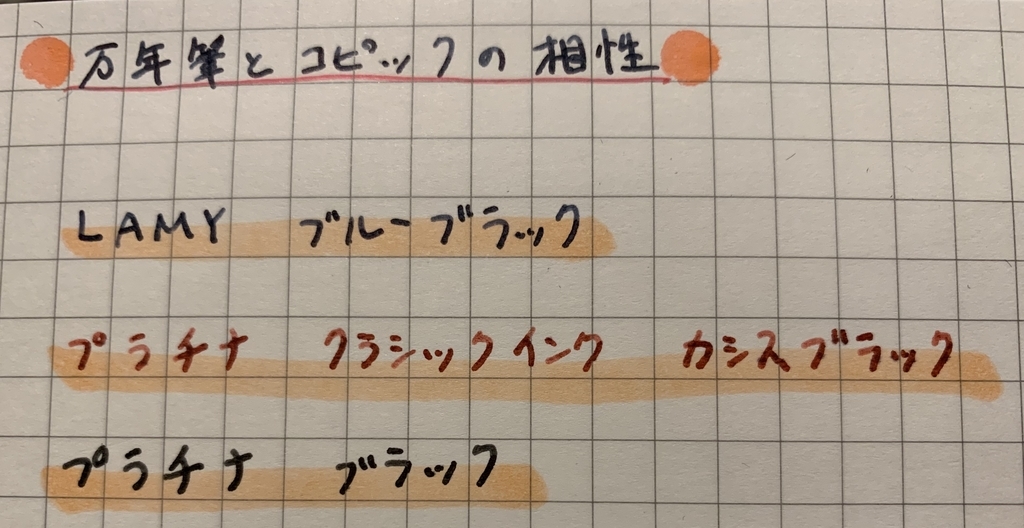 万年筆とコピックの相性
LAMY ブルーブラック
プラチナ クラシックインク カシスブラック
プラチナ ブラック